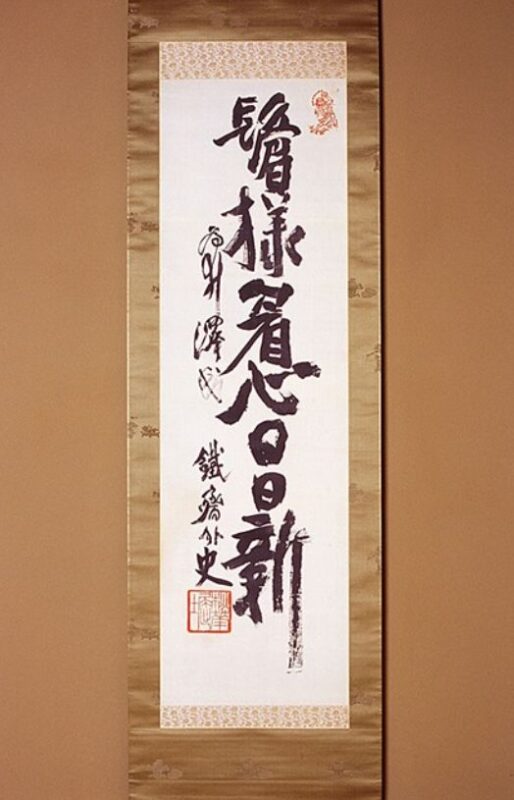 様心日日新
為井澤氏
鐵齋外史